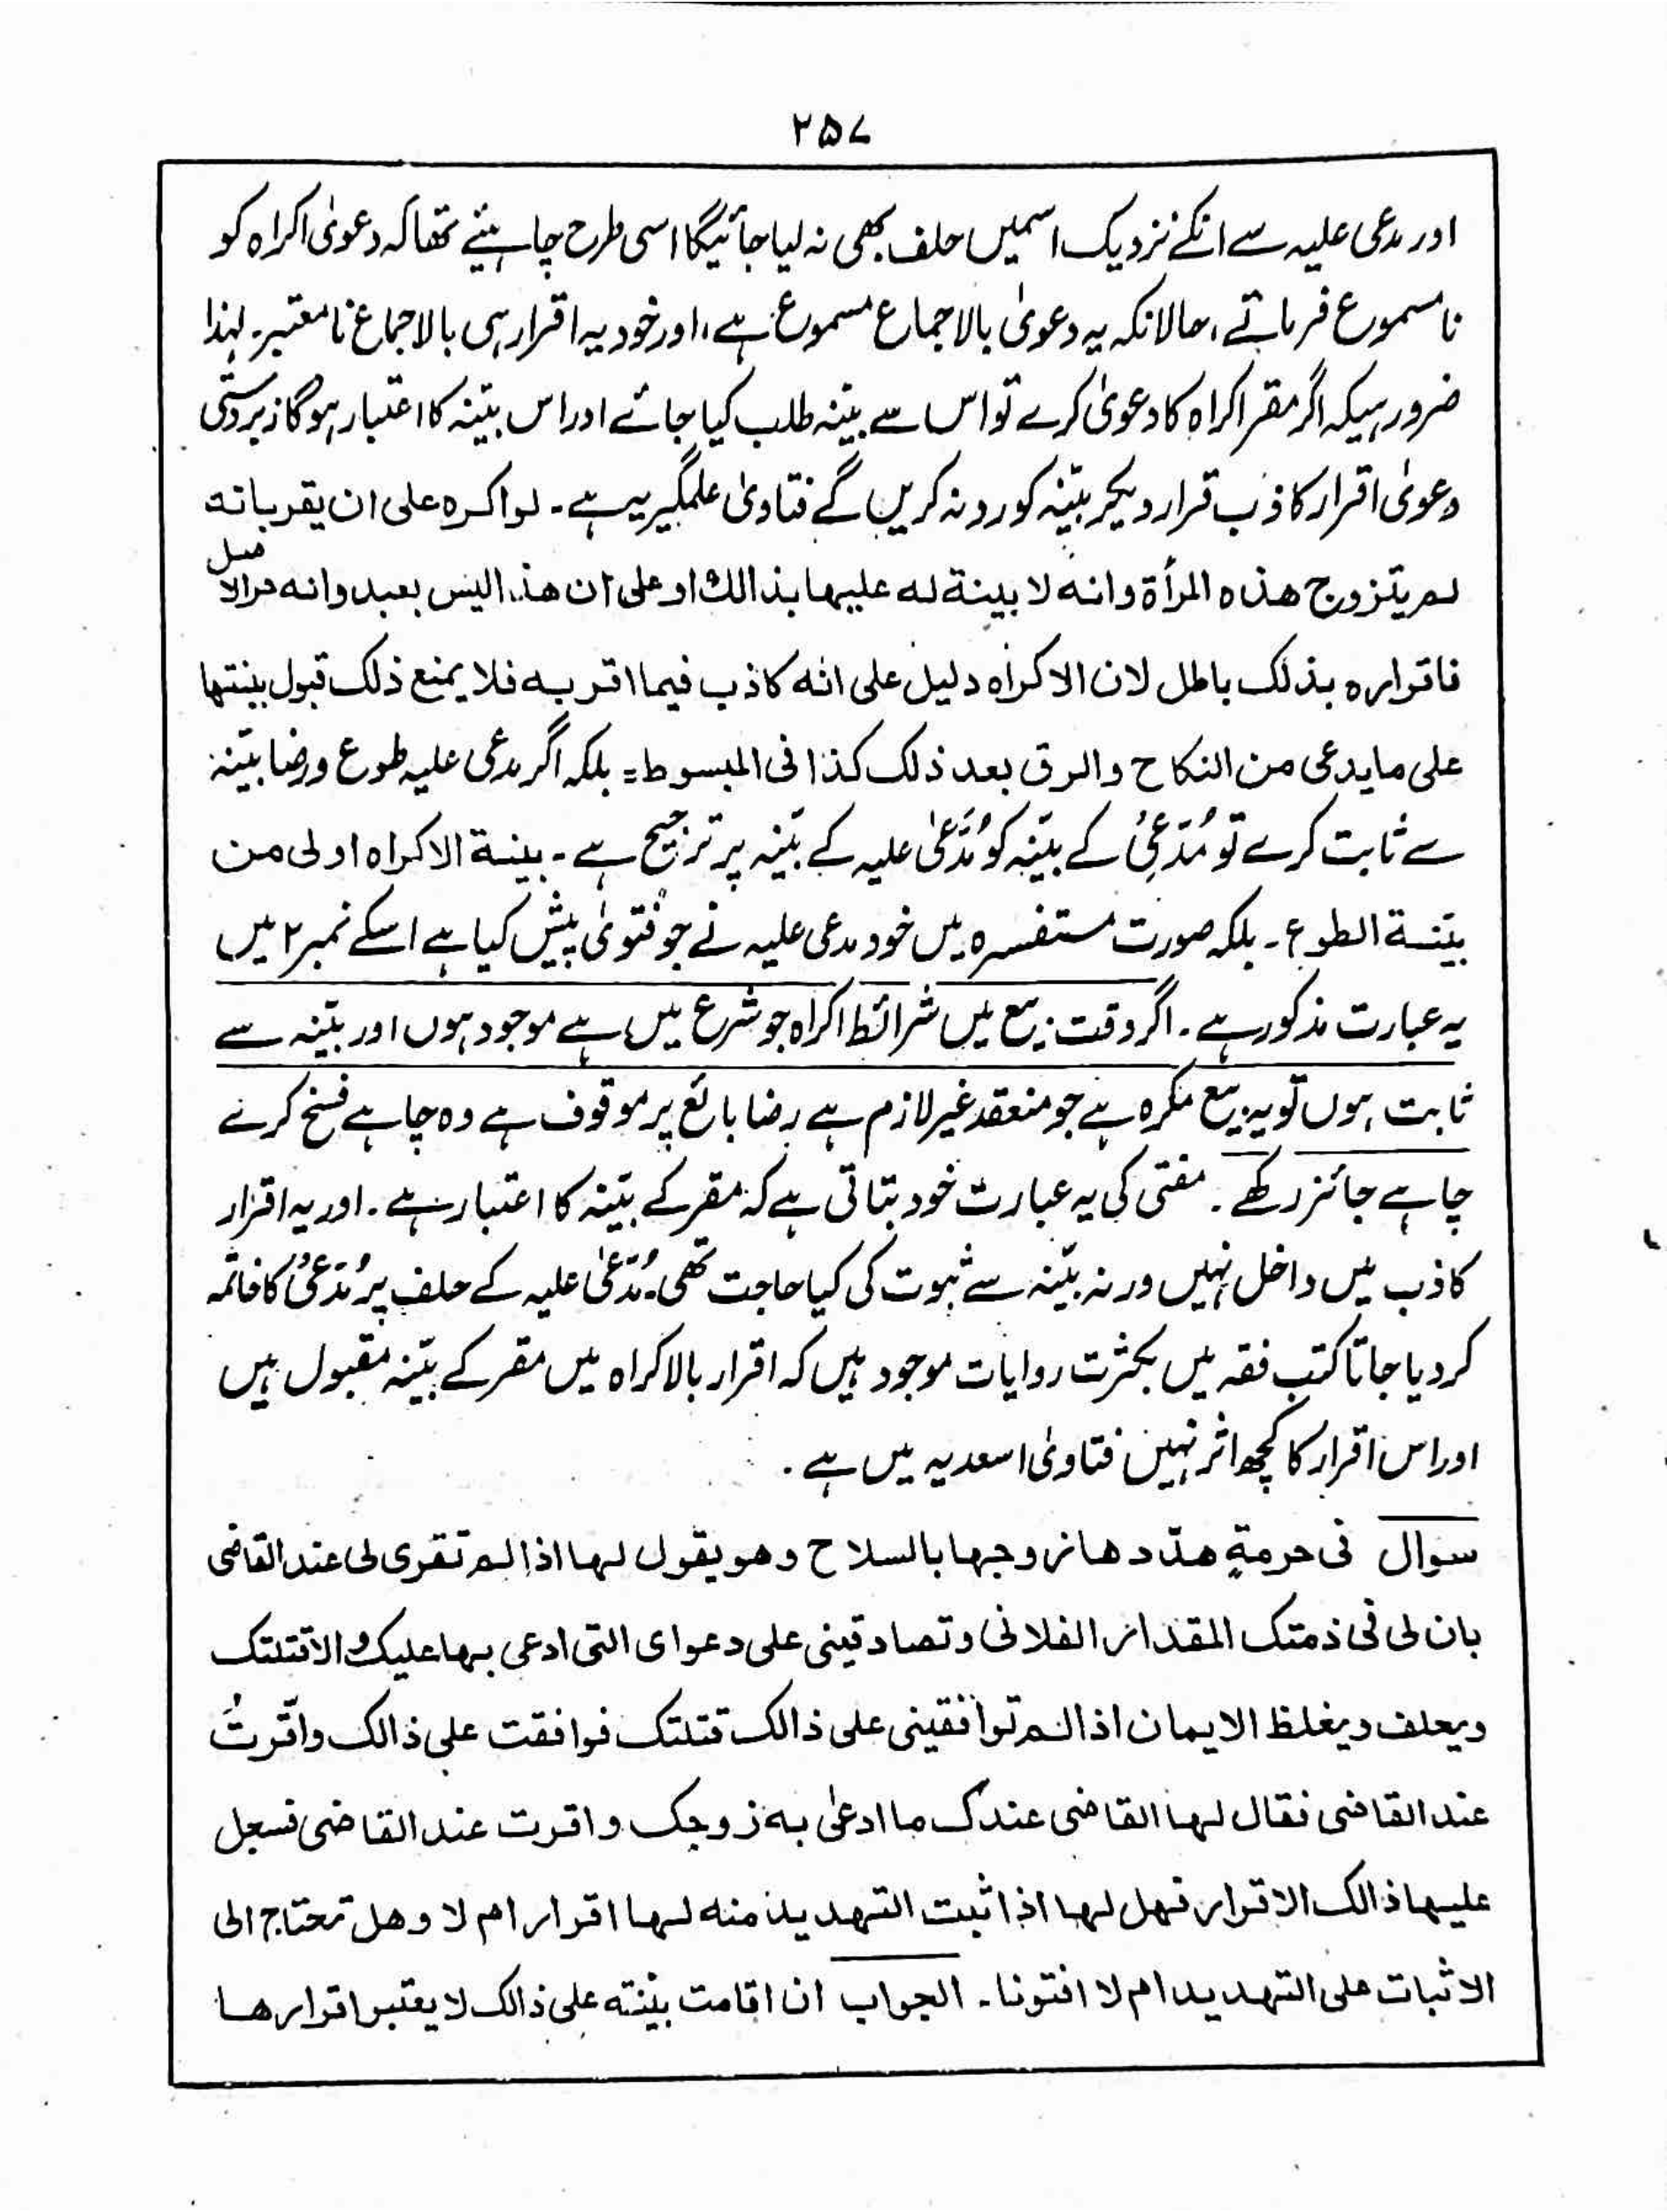 ۲۵۷
اور مدعی علیہ سے انکے نزدیک اسمیں حلف بھی نہ لیا جائیگا اسی طرح چاہیئے تھا کہ دعویٰ اکراہ کو
نا مسموع فرماتے، حالانکہ یہ دعویٰ بالاجماع مسموع ہے، اور خود یہ اقرار ہی بالاجماع نا معتبر۔ لہذا
ضرور ہیکہ اگر مقر اکراہ کا دعویٰ کرے تو اس سے بیّنہ طلب کیا جائے اور اس بیّنہ کا اعتبار ہوگا زبردستی
دعویٰ اقرار کاذب قرار دیکر بیّنہ کو رد نہ کریں گے فتاویٰ علمگیریہ ہے۔ لو اکرہ علی ان یقر بانہ
لم یتزوج ھذہ المرأۃ وانہ لا بینۃ لہ علیہا بذالك او علی ان ھذا لیس بعبد وانہ حر الاصل
فاقرارہ بذلک باطل لان الاکراہ دلیل علی انہ کاذب فیما اقر بہ فلا یمنع ذلک قبول بینتھا
علی ما یدعی من النکاح والرق بعد ذلک کذا فی المبسوط = بلکہ اگر مدعی علیہ طوع و رضا بیّنہ
سے ثابت کرے تو مُدّعِیْ کے بیّنہ کو مُدَّعیٰ علیہ کے بیّنہ پر ترجیح ہے۔ بینۃ الاکراہ اولی من
بیّنۃ الطوع۔ بلکہ صورت مستفسرہ میں خود مدعی علیہ نے جو فتویٰ پیش کیا ہے اسکے نمبر ۲ میں
یہ عبارت مذکور ہے۔ اگر وقت بیع میں شرائط اکراہ جو شرع میں ہے موجود ہوں اور بیّنہ سے
ثابت ہوں تو یہ بیع مکرہ ہے جو منعقد غیر لازم ہے رضا بائع پر موقوف ہے وہ چاہے فسخ کرے
چاہے جائز رکھے۔ مفتی کی یہ عبارت خود بتاتی ہے کہ مقر کے بیّنہ کا اعتبار ہے۔ اور یہ اقرار
کاذب میں داخل نہیں ورنہ بیّنہ سے ثبوت کی کیا حاجت تھی۔ مُدَّعیٰ علیہ کے حلف پر مُدّعِیْ کا خاتمہ
کر دیا جاتا کتب فقہ میں بکثرت روایات موجود ہیں کہ اقرار بالاکراہ میں مقر کے بیّنہ مقبول ہیں
اور اس اقرار کا کچھ اثر نہیں فتاویٰ اسعدیہ میں ہے۔
سوال فی حرمۃٍ ھدّدھا زوجہا بالسلاح وھو یقول لہا اذا لم تقری لی عند القاضی
بان لی فی ذمتک المقدار الفلانی وتصادقینی علی دعوای التی ادعی بہا علیک والا قتلتک
ویحلف ویغلظ الایمان اذا لم توافقینی علی ذالک قتلتک فوافقت علی ذالک واقرّت
عند القاضی فقال لہا القاضی عندک ما ادعیٰ بہ زوجک واقرت عند القاضی فسجل
علیہا ذالک الاقرار فہل لہا اذا ثبت التہدید منہ لہا اقرار ام لا وھل تحتاج الی
الاثبات علی التہدید ام لا افتونا۔ الجواب ان اقامت بیّنتہ علی ذالک لا یعتبر اقرارھا